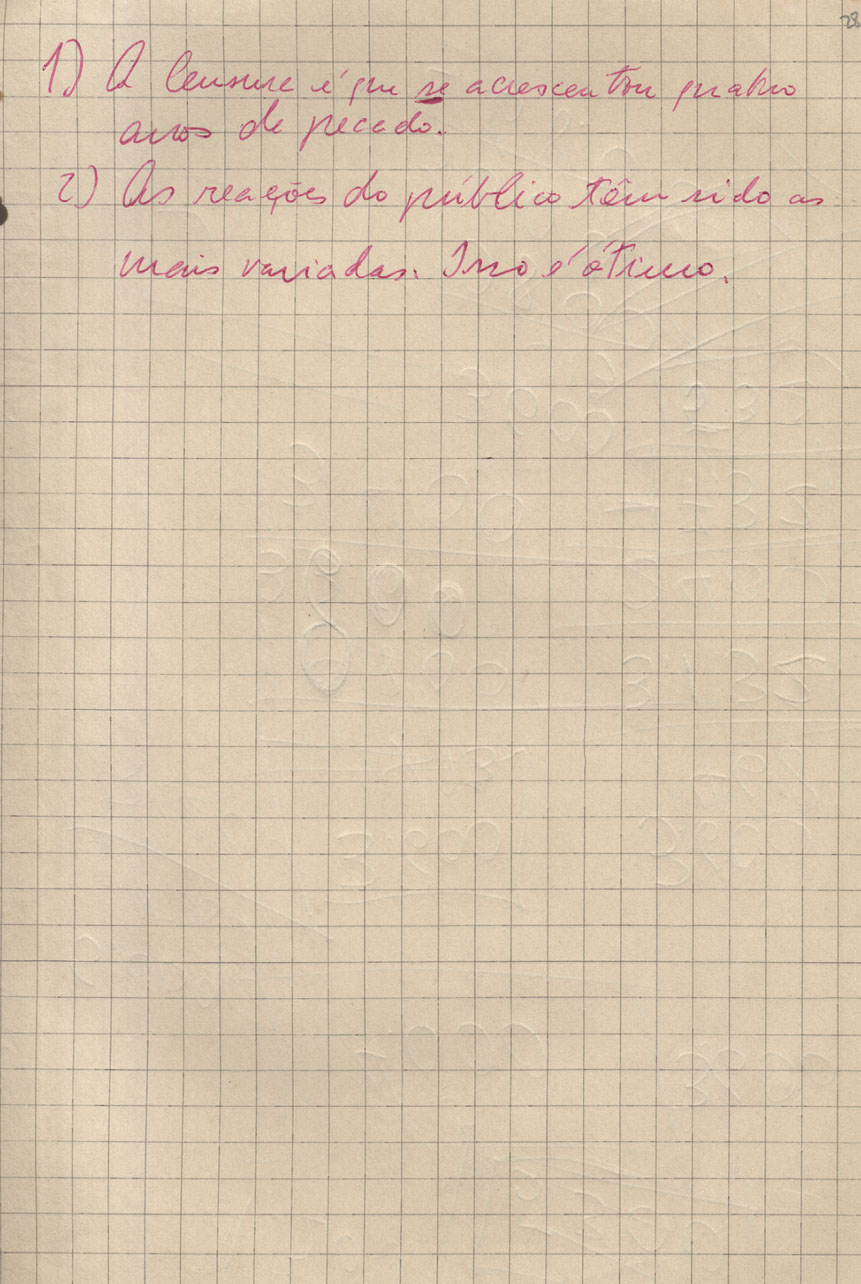 28
1) A Censura é que se acrescentou quatro
anos de pecado.
2) As reações do público têm sido as
mais variadas. Isso é ótimo.